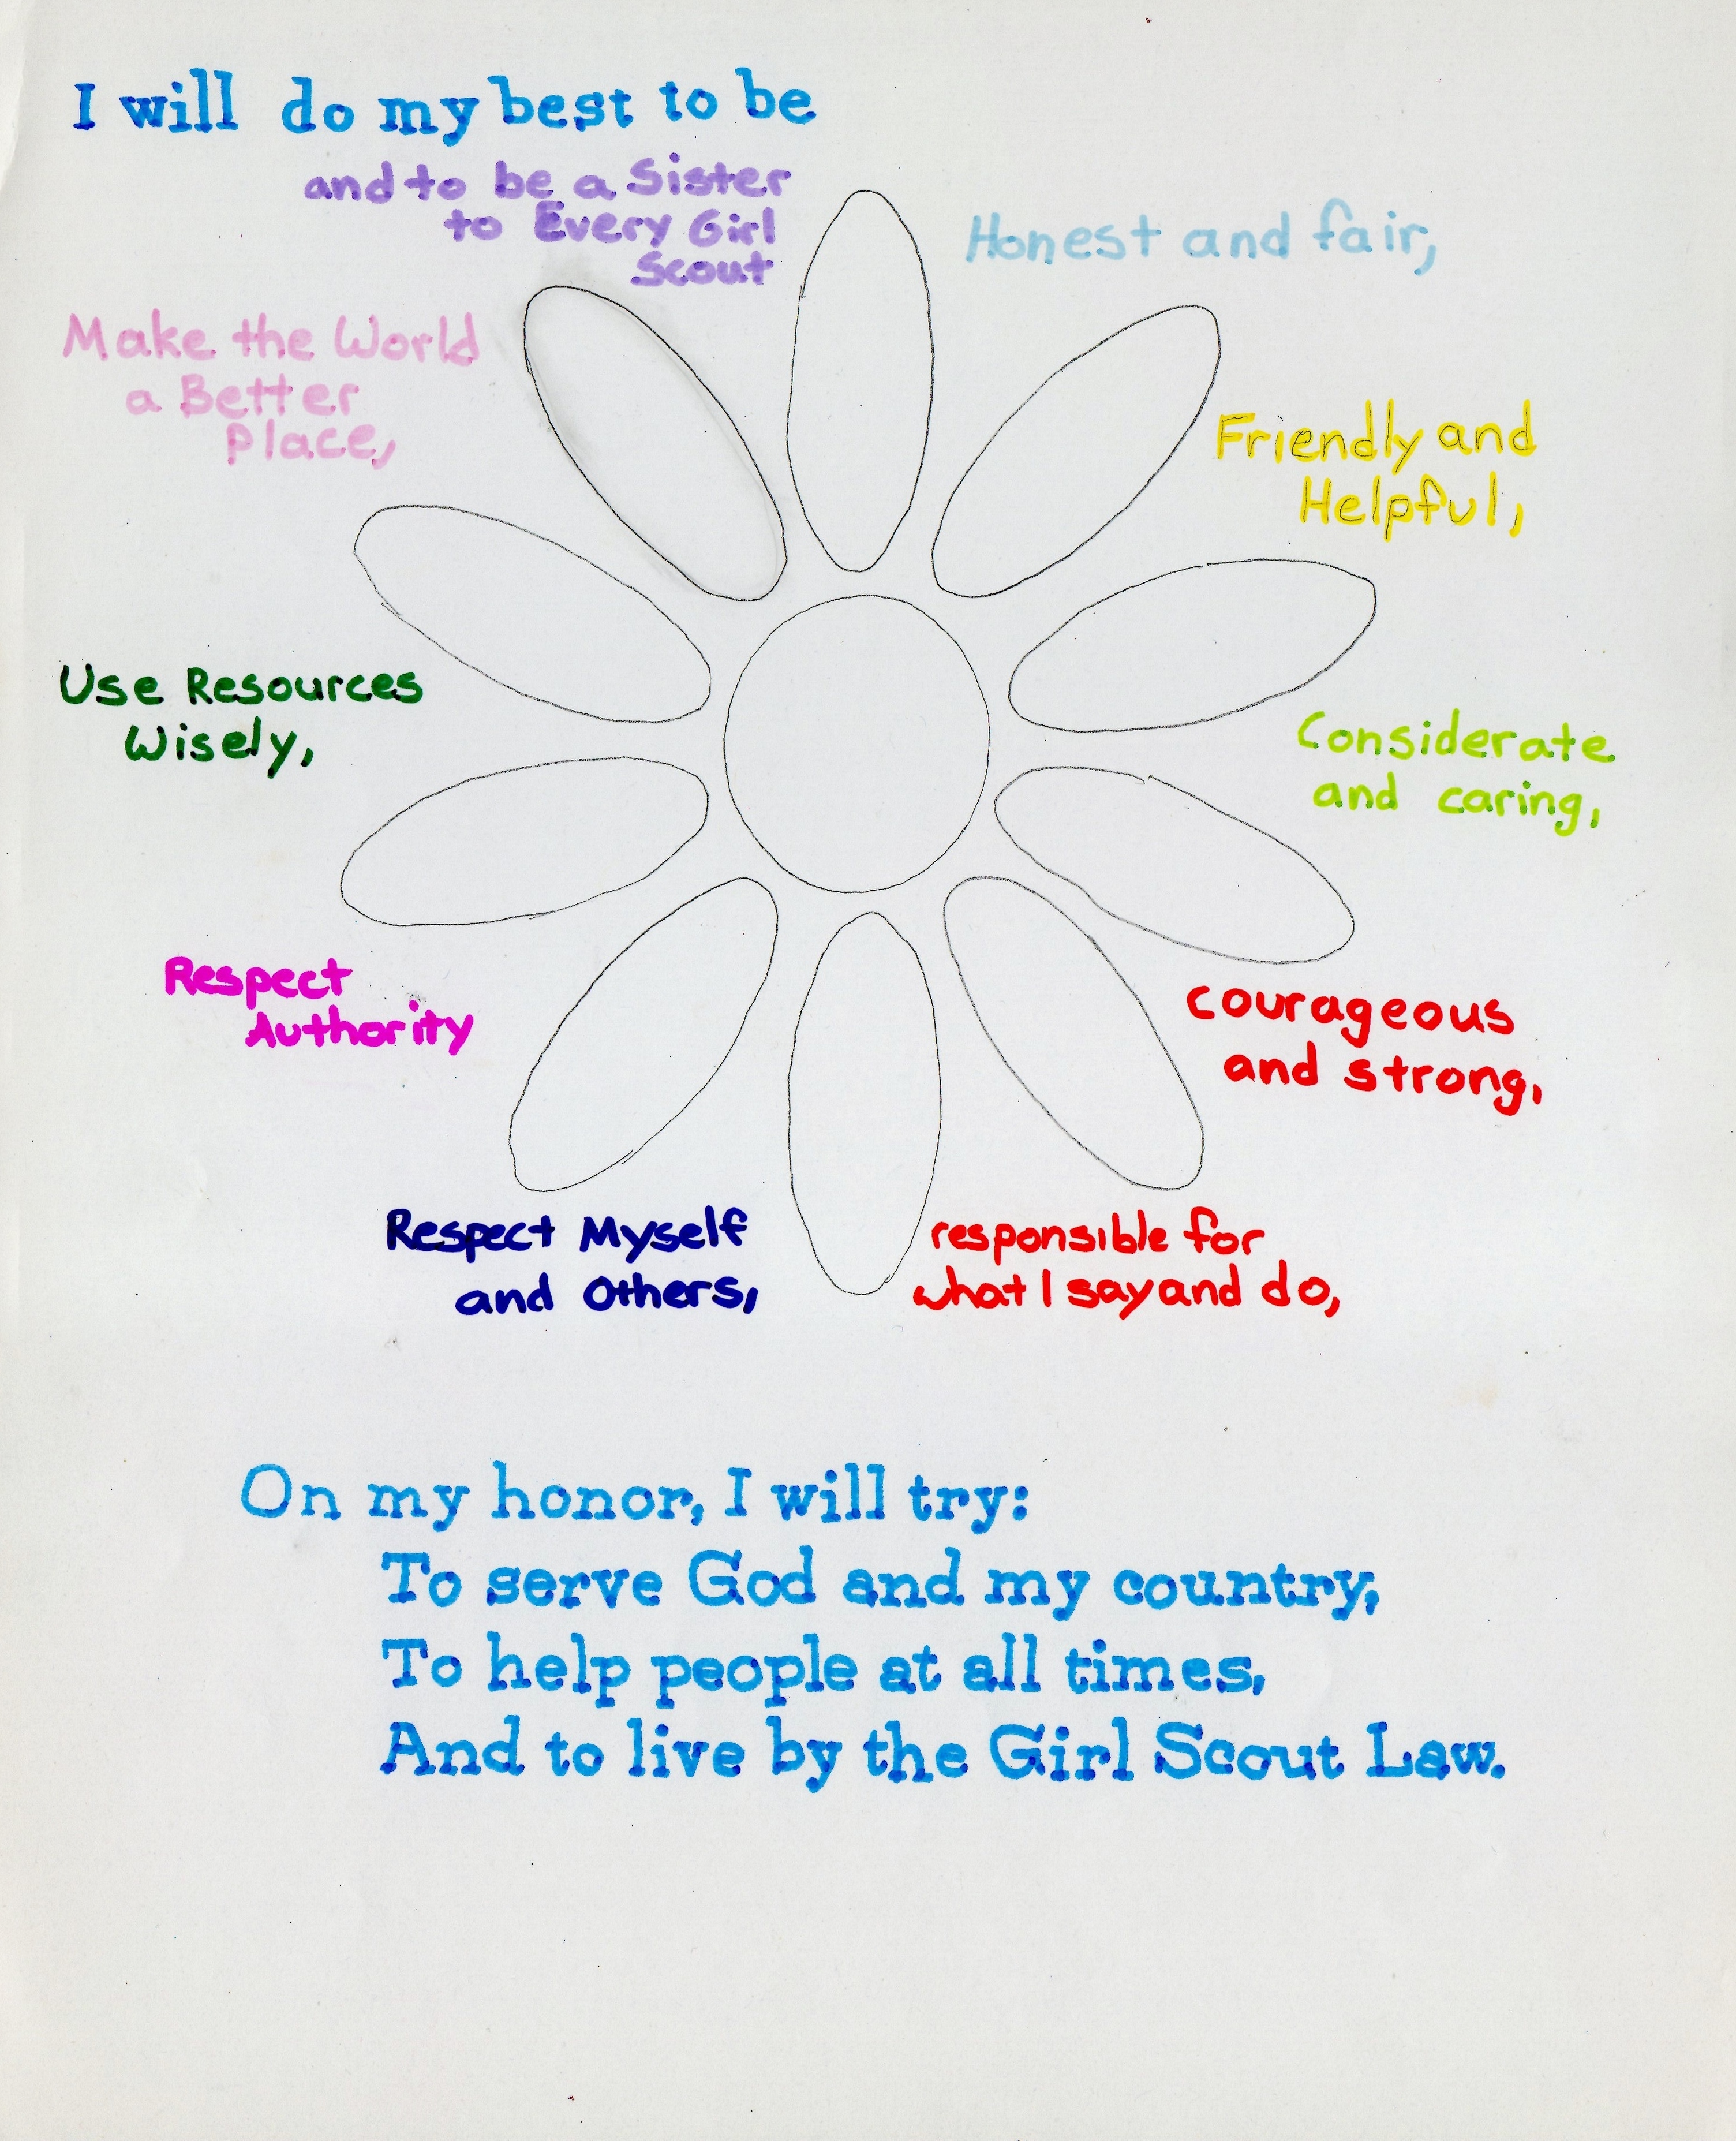 I will do my best to be
Honest and fair,
Friendly and
Helpful,
Considerate
and caring,
courageous
and strong,
responsible for
what I say and do,
Respect Myself
and Others,
Respect
Authority
Use Resources
Wisely,
Make the World
a Better
place,
and to be a Sister
to Every Girl
Scout
On my honor, I will try:
To serve God and my country,
To help people at all times,
And to live by the Girl Scout Law.